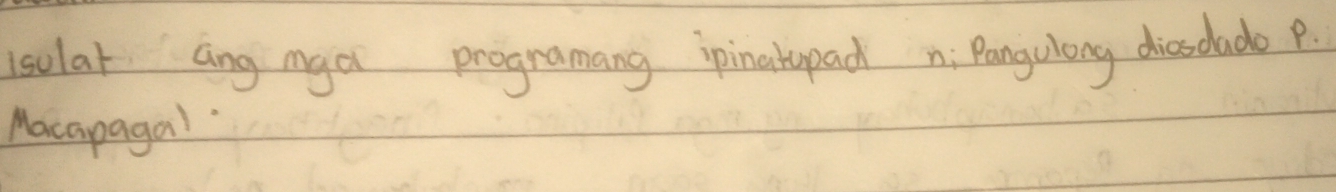 isulat ang mga programang ipinatupad ni Pangulong diosdado P.
Macapagal.